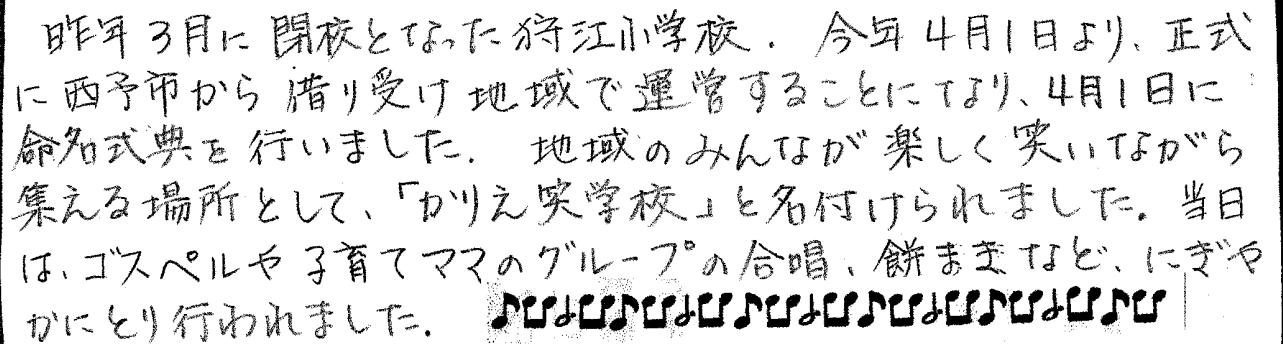 昨年3月に閉校となった狩江小学校. 今年4月1日より、正式
に西予市から借り受け地域で運営することになり、4月1日に
命名式典を行いました. 地域のみんなが楽しく笑いながら
集える場所として、「かりえ笑学校」と名付けられました. 当日
は、ゴスペルや子育てママのグループの合唱、餅まきなど、にぎや
かにとり行われました.